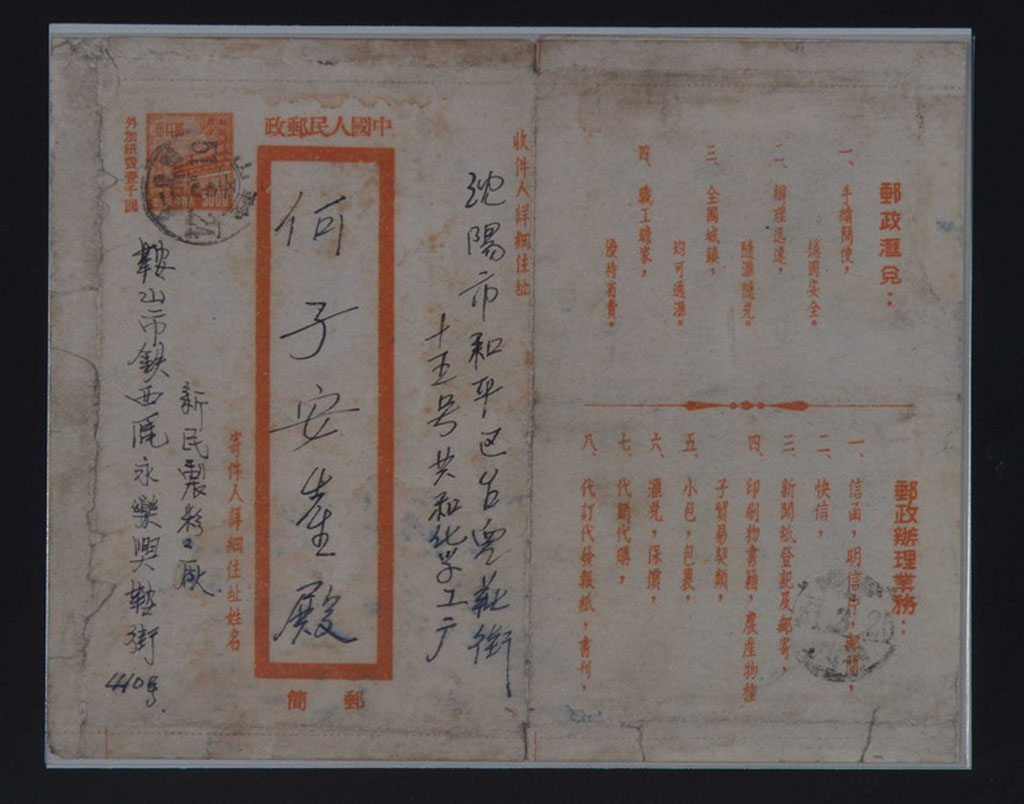 郵政滙兌：
一、手續簡便，
穩固安全。
二、辦理迅速，
隨滙隨兌。
三、全國城鎮，
均可通滙。
四、職工贍家，
優待省費。
郵政辦理業務：
一、信函，明信片，郵簡，
二、快信，
三、新聞紙登記及郵寄，
四、印刷物書籍，農產物種
子貿易契類，
五、小包，包裹，
六、滙兌，保價，
七、代銷代購，
八、代訂代發報紙，書刊，
收件人詳細住址
沈陽市和平区
街
十五号共和化学工厂
中國人民郵政
何子安
殿
郵簡
寄件人詳細住址姓名
新民製
鞍山市鉄西
永樂興鞍街
440号
外加紙費壹千圓
5000
51
24
25